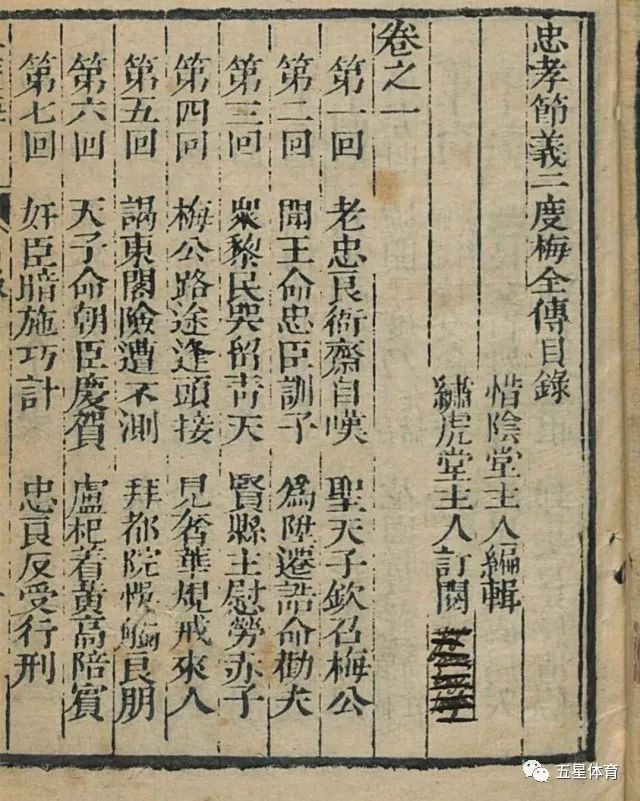 忠孝節義二度梅全傳目錄
惜陰堂主人編輯
繡虎堂主人訂閱
卷之一
第一回 老忠良衙齋自嘆 聖天子欽召梅公
第二回 聞王命忠臣訓子 為陞遷誥命勸夫
第三回 衆黎民哭留青天 賢縣主慰勞赤子
第四回 梅公路途逢頭接 見奢華規戒來人
第五回 謁東閣險遭不測 拜都院悞觸良朋
第六回 天子命朝臣慶賀 盧杞着黃高陪賓
第七回 奸臣暗施巧計 忠良反受行刑
五星体育